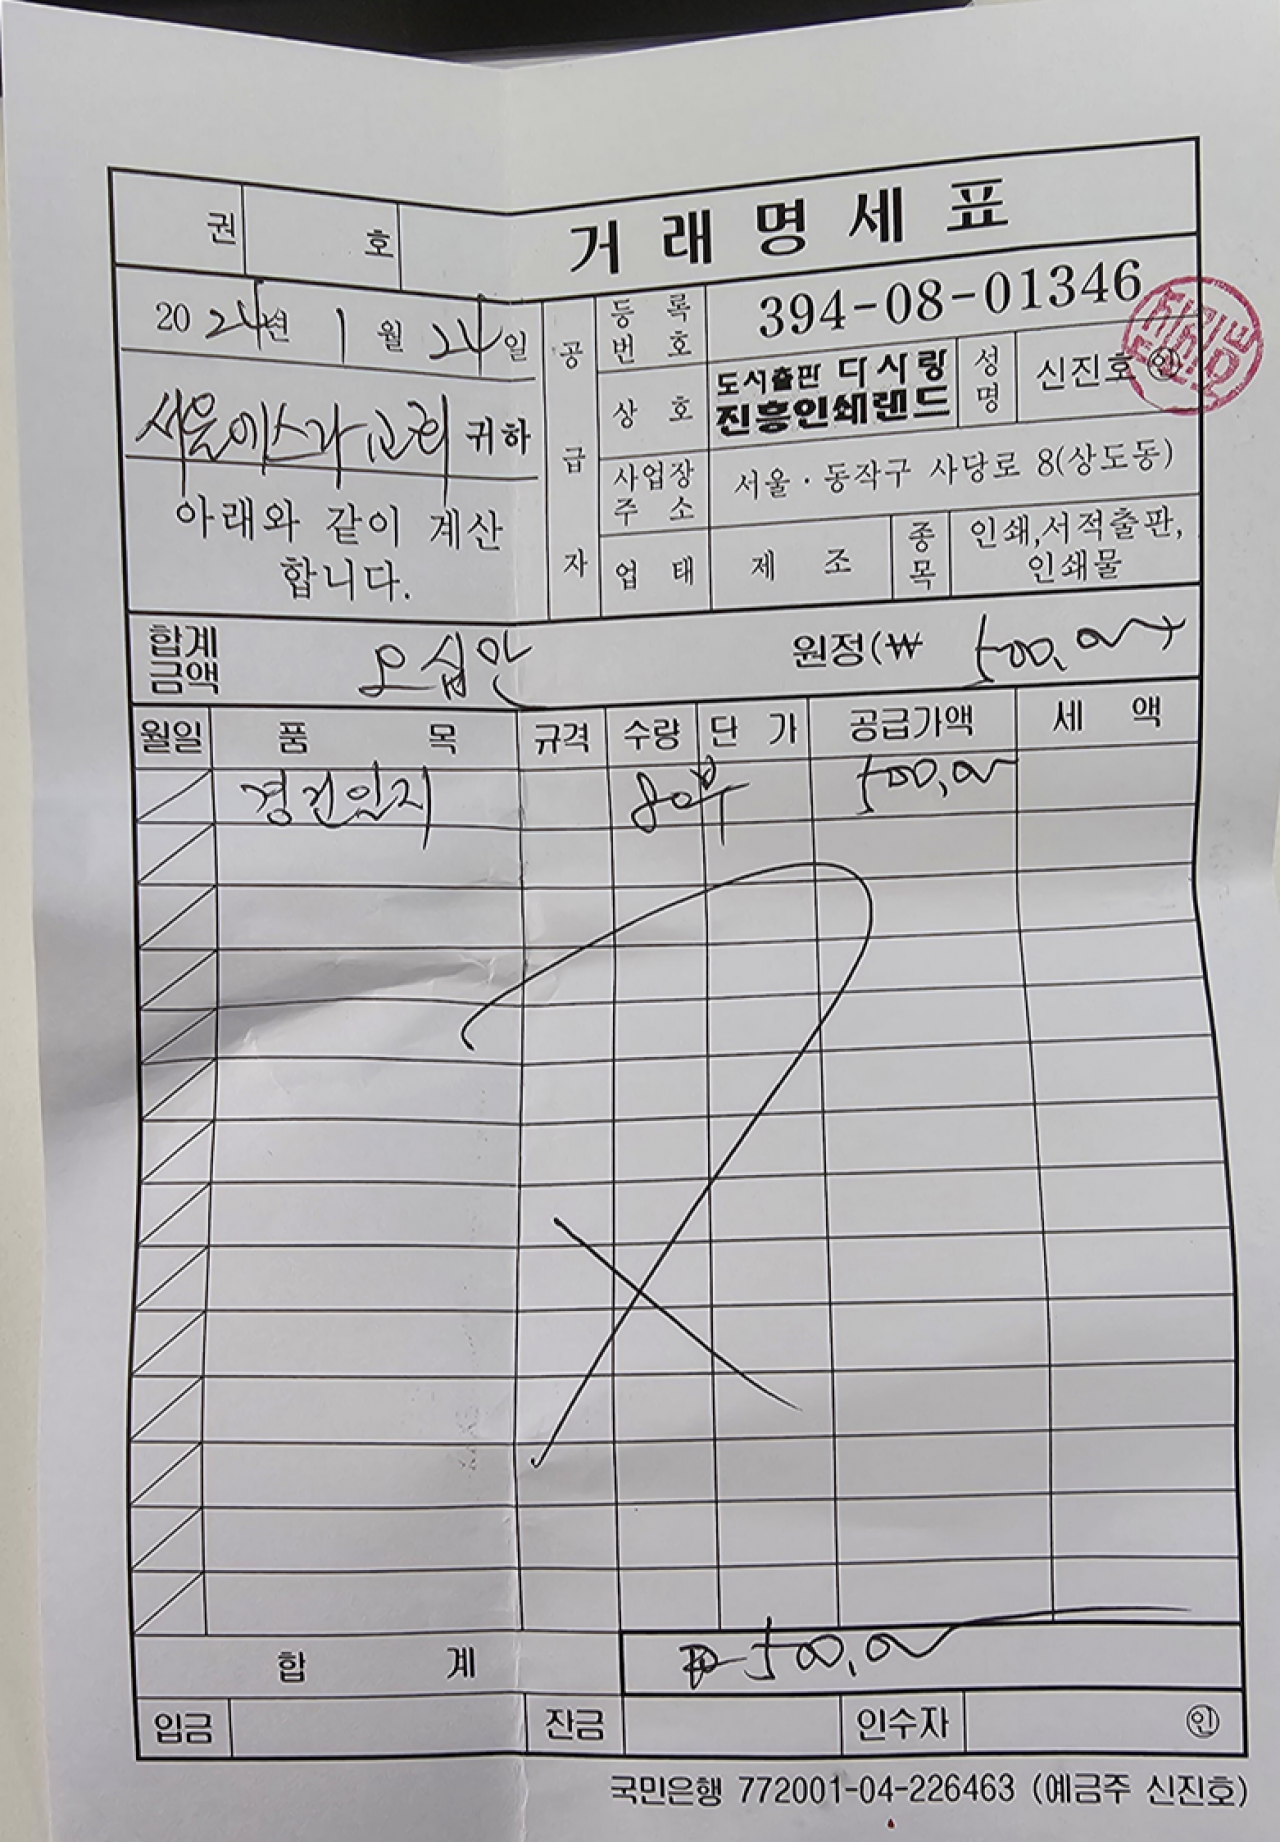 권 호 거래명세표
2024년 1월 24일
서울에스라교회 귀하
아래와 같이 계산
합니다.
공급자
등록번호 394-08-01346
상호 도서출판 다사랑
진흥인쇄랜드
성명 신진호 ㊞
사업장주소 서울·동작구 사당로 8(상도동)
업태 제조 종목 인쇄,서적출판,
인쇄물
합계금액 오십만 원정(₩ 500,000
월일 품목 규격 수량 단가 공급가액 세액
경건일지 80부 500,000
합계 ₩500,000
입금 잔금 인수자 ㊞
국민은행 772001-04-226463 (예금주 신진호)